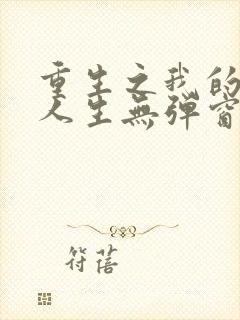 重生之我的
人生無彈窗
符蓓